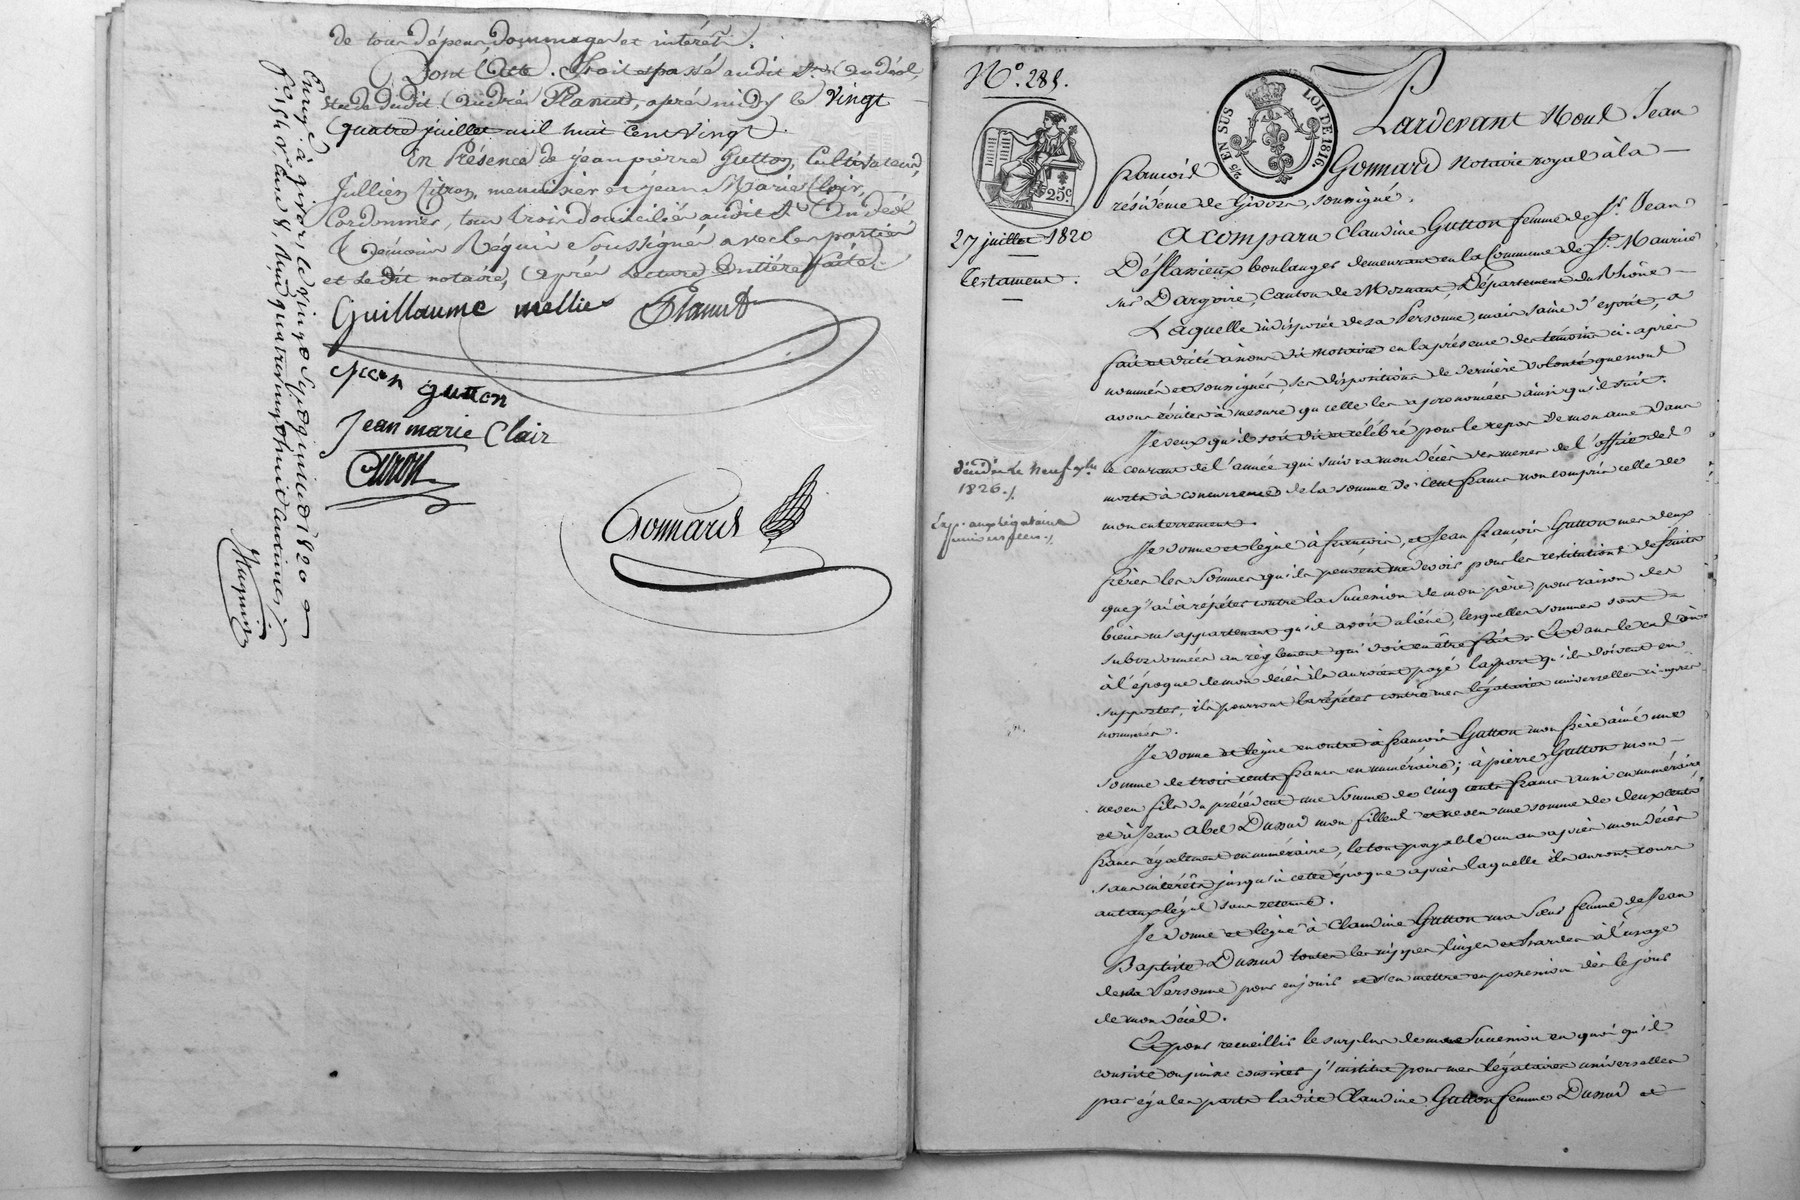 de tous dépens, dommages et intérêts.
Dont Acte. Fait et passé audit St. Andéol,
dudit André Flamud, après midy le vingt
quatre juillet mil huit cent vingt.
En Présence de jean pierre Gutton, Cultivateur,
Jullien Citron, menuisier et jean Marie Clair,
Cordonnier, tous trois domiciliés audit St. Andéol,
témoins Requis Soussignés avec les parties
et le dit notaire, après lecture Entière faite.
Guillaume mellier
jean gutton
Jean marie Clair
Citron
Gonnard
Enreg. à givors, le vingt Sept juillet 1820
N°. 285.
25 EN SUS
LOI DE 1816.
25 c.
27 juillet 1820
testament.
Pardevant Nous Jean
françois Gonnard Notaire royal à la
résidence de Givors, soussigné.
A comparu Claudine Gutton femme de Sr. Jean
Déflassieux boulanger demeurant en la Commune de St. Maurice
sur Dargoire, Canton de Mornant, Département du Rhône
Laquelle indisposée de sa Personne, mais saine d'esprit, a
fait et dicté à nous dit notaire en la présence des témoins ci-après
nommés et soussignés, ses dispositions de dernière volonté que nous
avons écrites à mesure qu'elle les a prononcées ainsi qu'il suit.
Je veux qu'il soit dit et célébré pour le repos de mon ame dans
le courant de l'année qui suivra mon décès des messes de l'office des
morts à concurrence de la somme de Cent francs non compris celle de
mon enterrement.
décédée le neuf
1826.
Exp. aux légataires
universelles.
Je donne et lègue à françois, et Jean françois Gutton mes deux
frères les sommes qu'ils peuvent me devoir pour les restitutions de fruits
que j'ai à répéter contre la Succession de mon père, pour raison des
biens m'appartenant qu'il avoit aliéné, lesquelles sommes sont
subordonnées au règlement qui doit en être fait. Et dans le cas où
à l'époque de mon décès ils auroient payé la part qu'ils doivent en
supporter, ils pourront la répéter contre mes légataires universelles ci-après
nommées.
Je donne et lègue en outre à françois Gutton mon frère ainé une
somme de trois cents francs en numéraire; à pierre Gutton mon
neveu fils du précédent une Somme de cinq cents francs aussi en numéraire
et à Jean Abel Dussud mon filleul et neveu une somme de deux cents
francs également en numéraire, le tout payable un an après mon décès
sans intérêts jusqu'à cette époque après laquelle ils auront cours
au taux légal sans retenue.
Je donne et lègue à Claudine Gutton ma Sœur femme de Jean
Baptiste Dussud toutes les nippes, linges et hardes à l'usage
de ma Personne pour en jouir et s'en mettre en possession dès le jour
de mon décès.
Et pour recueillir le surplus de ma Succession en quoi qu'il
consiste ou puisse consister j'institue pour mes légataires universelles
par égales parts ladite Claudine Gutton femme Dussud et